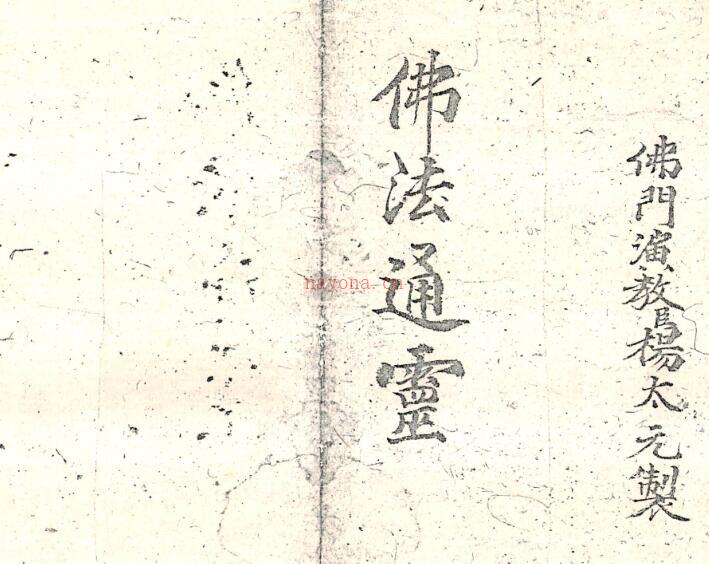 佛門演教臣楊太元製
佛法通靈
nayona.cn